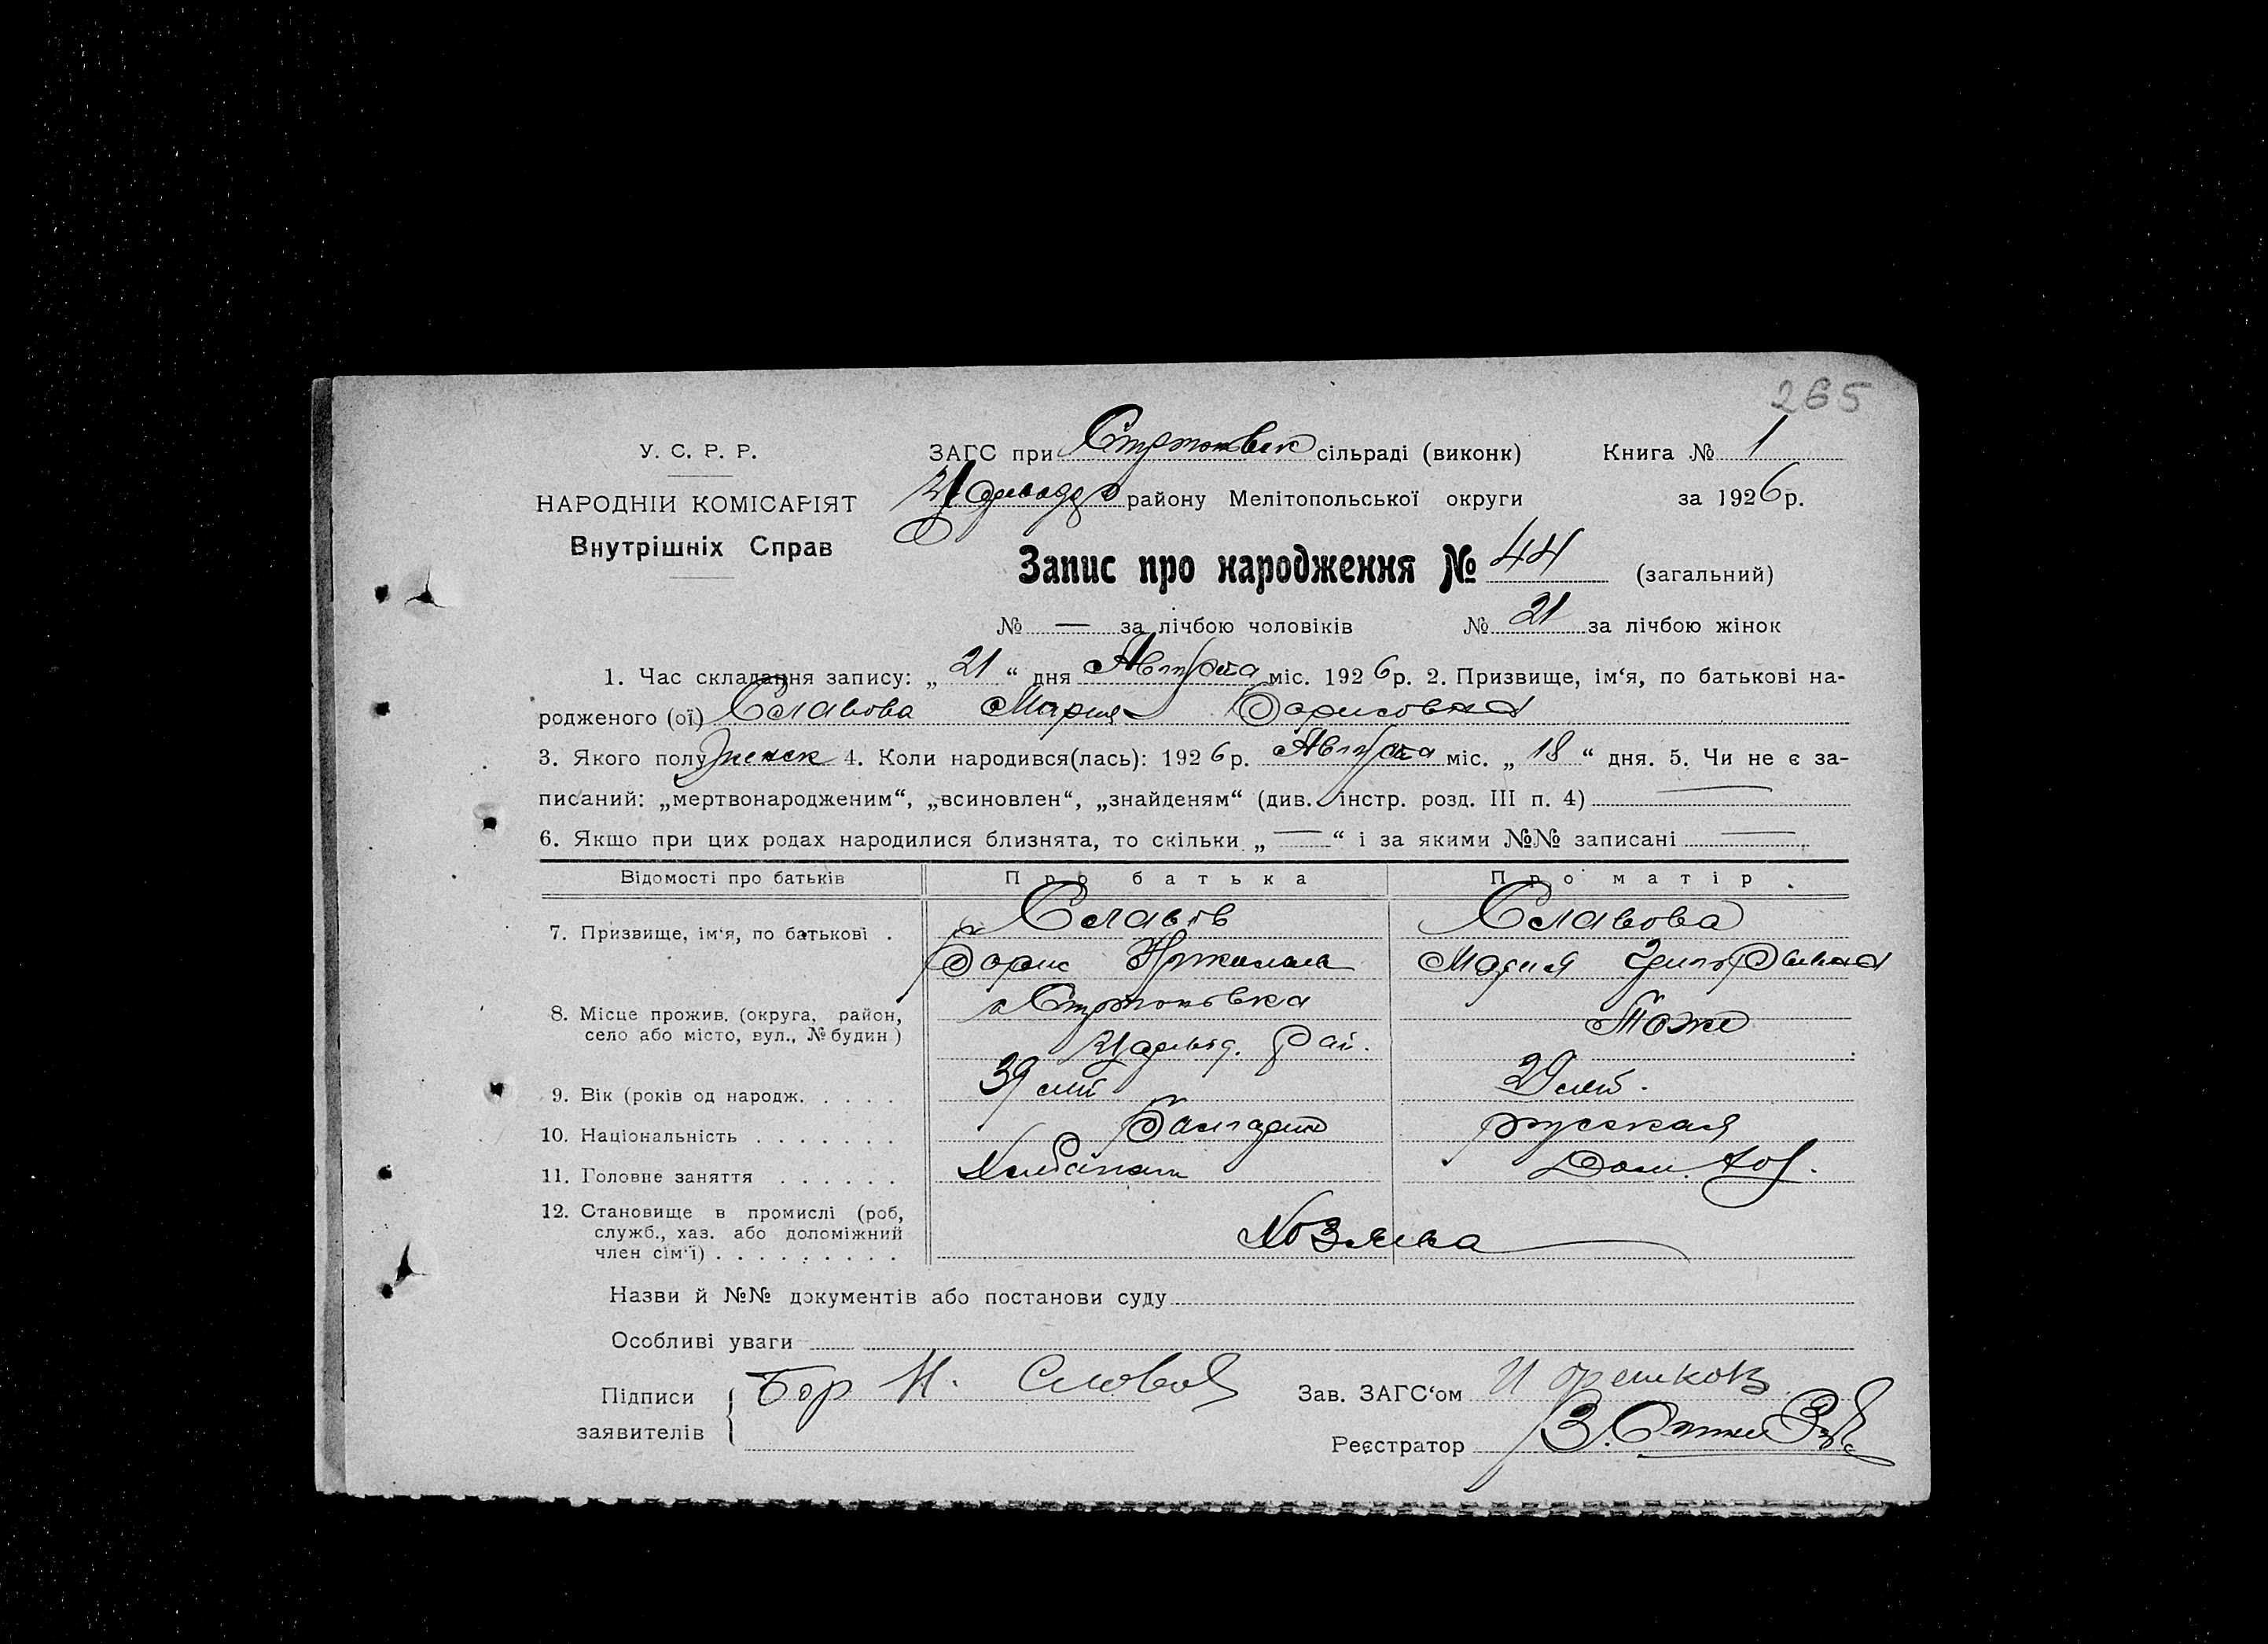 265
У. С. Р. Р.
НАРОДНІЙ КОМІСАРІЯТ
Внутрішніх Справ
ЗАГС при сільраді (виконк) Книга № 1
району Мелітопольської округи за 1926 р.
Запис про народження № 44 (загальний)
№ — за лічбою чоловіків № 21 за лічбою жінок
1. Час складання запису: „ 21 “ дня Августа міс. 1926 р. 2. Призвище, ім‘я, по батькові на-
родженого (ої) Славова Мария Борисовна
3. Якого полу женск 4. Коли народився(лась): 1926 р. Августа міс. „ 18 “ дня. 5. Чи не є за-
писаний: „мертвонародженим“, „всиновлен“, „знайденям“ (див. інстр. розд. III п. 4) —
6. Якщо при цих родах народилися близнята, то скільки „ — “ і за якими №№ записані —
Відомості про батьків Про батька Про матір
7. Призвище, ім‘я, по батькові . Славов Славова
Борис Мария
8. Місце прожив. (округа, район,
село або місто, вул., № будин) Тоже
Рай.
9. Вік (років од народж. . . . . 39 лет 29 лет.
10. Національність . . . . . . . Болгарин русская
11. Головне заняття . . . . . . Хлебопаш Дом. хоз.
12. Становище в промислі (роб,
служб., хаз. або допоміжний
член сім‘ї) . . . . . . . . . Хозяева
Назви й №№ документів або постанови суду
Особливі уваги
Підписи
заявителів
Бор Н. Славов
Зав. ЗАГС‘ом
Реєстратор